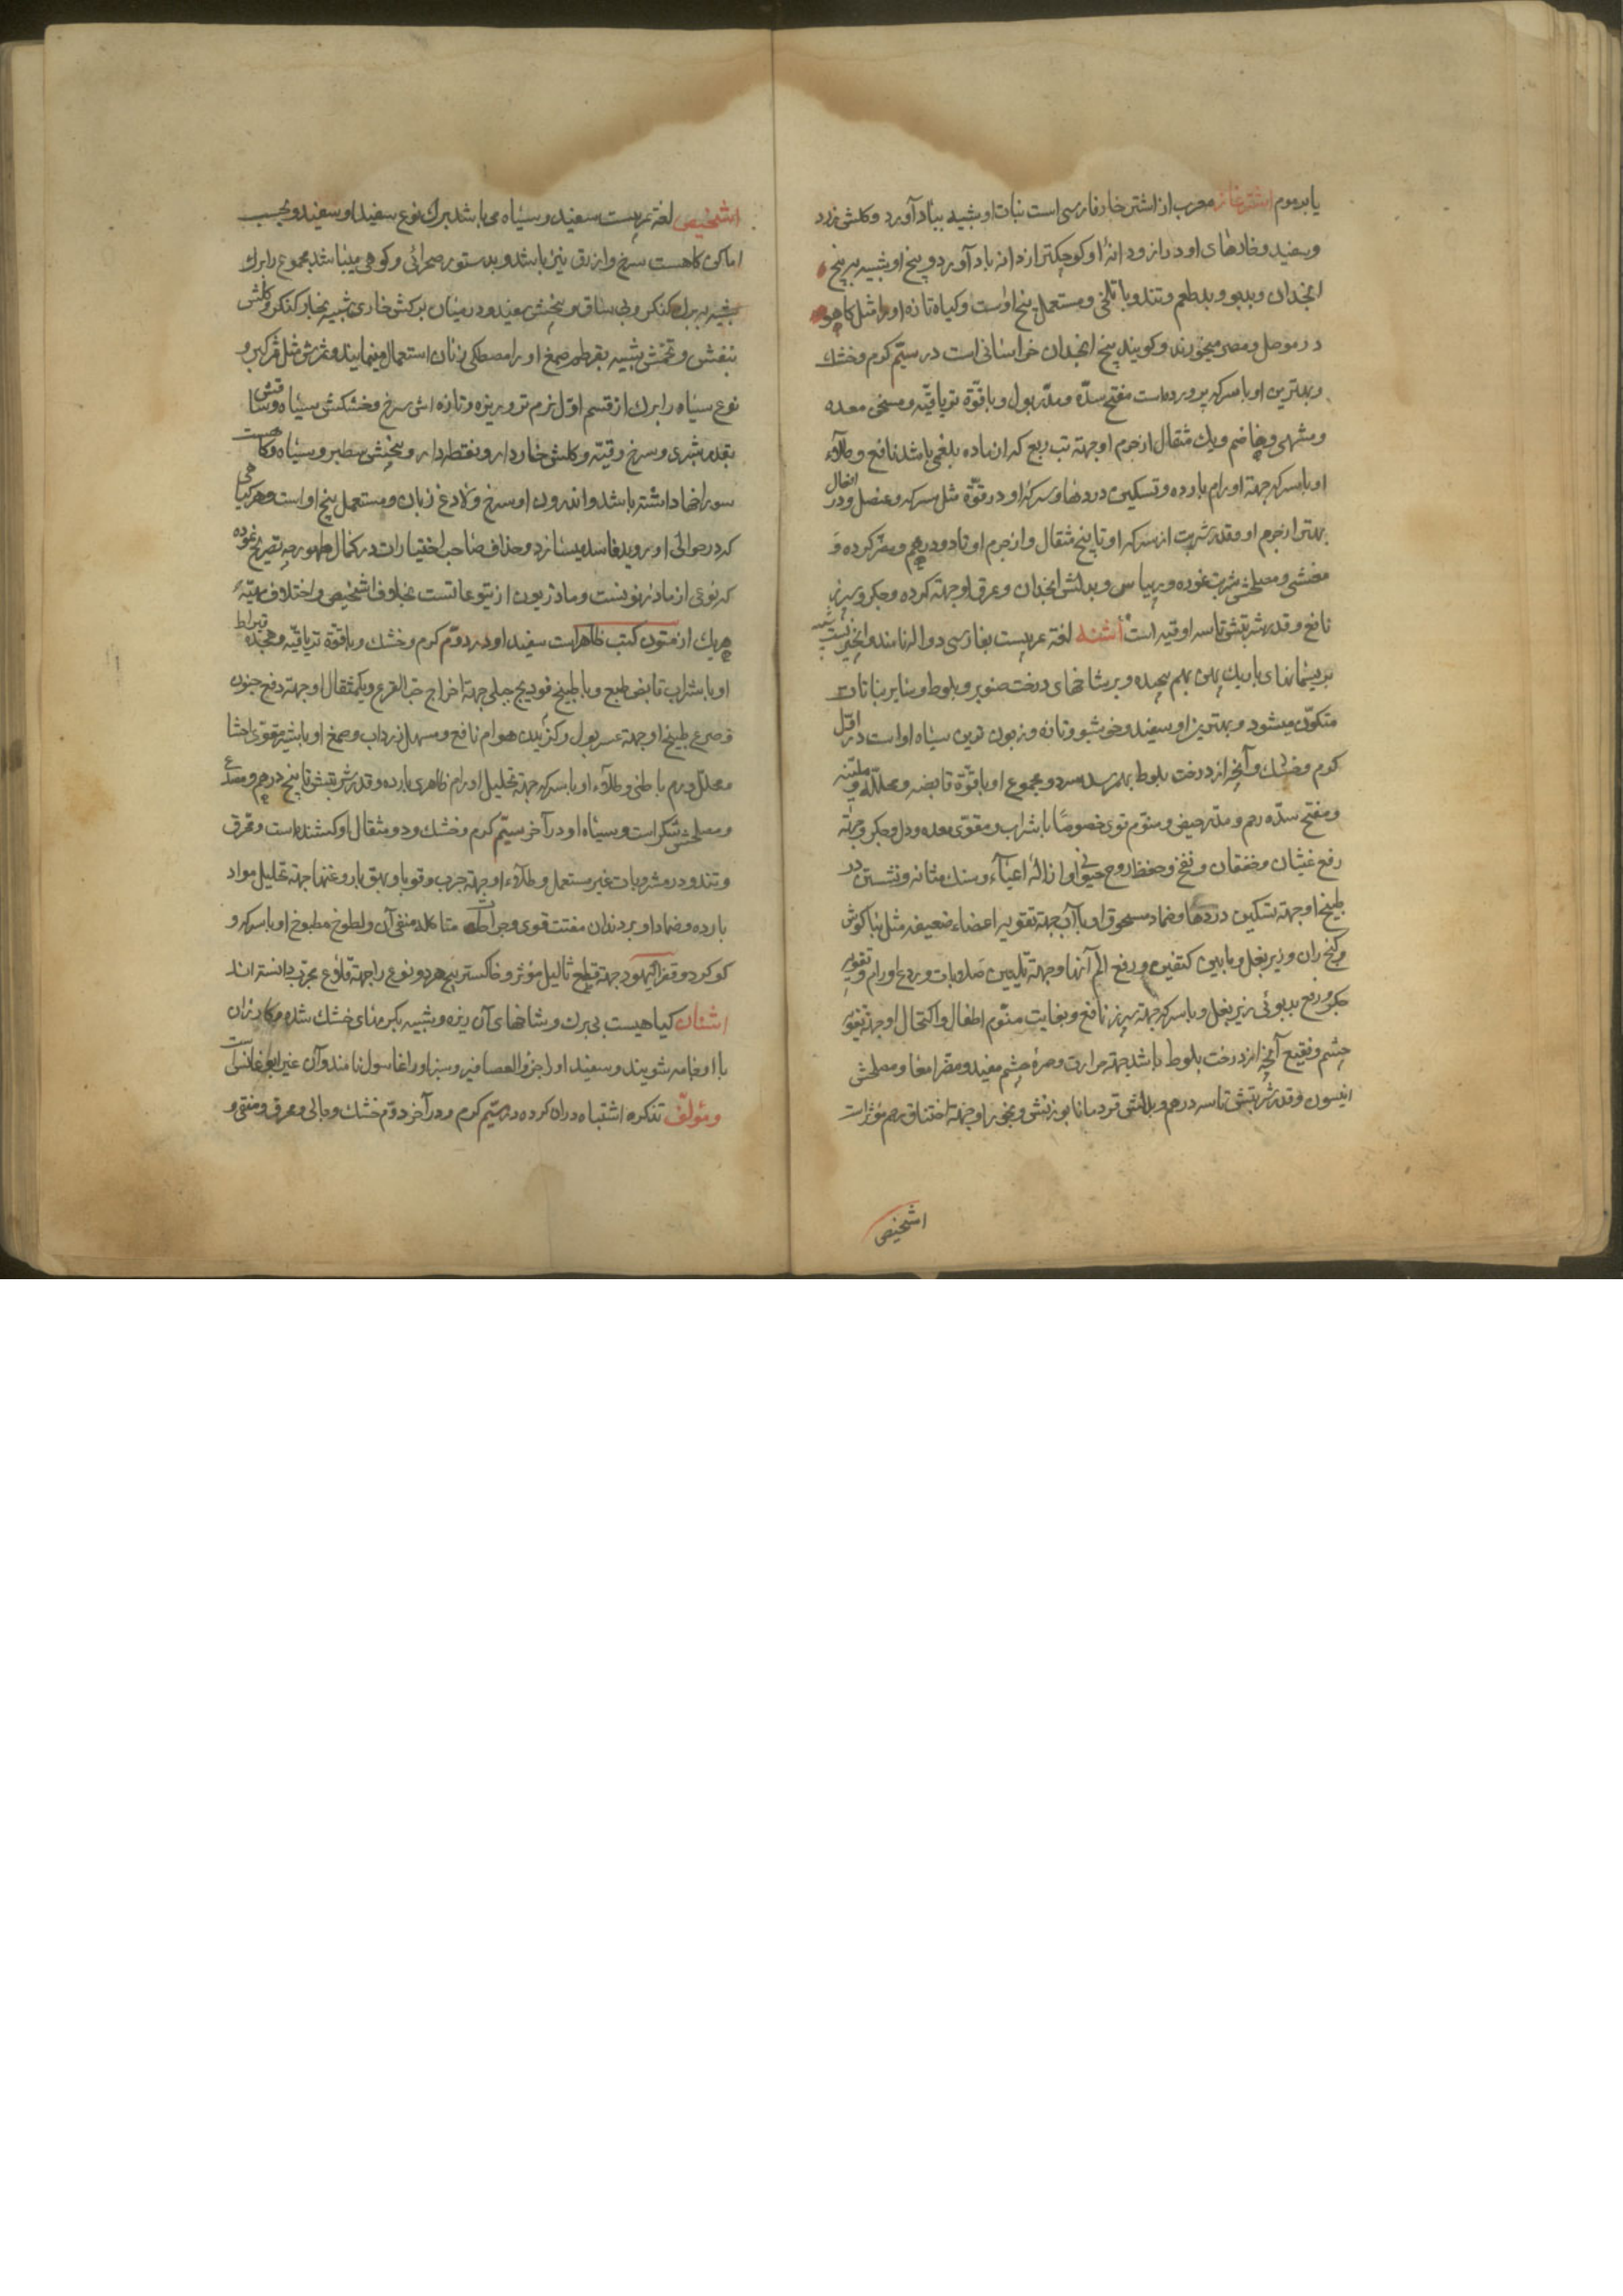 یابد موم اشترغاز معرب از اشتر خار فارسی است نبات او شبیه بباد آورد و کلش زرد
و سفید و خارهای او دراز و دانهٔ او کوچکتر از دانه باد آورد و بیخ او شبیه به بیخ
انجدان و بدبو و بدطعم و تند و با تلخی و مستعمل بیخ اوست و کیاه تازه او را مثل کاهو
در موصل و مصر میخورند و کویند بیخ انجدان خراسانی است در سیّم کرم و خشک
و بهترین او با سرکه پرورده است مفتح سدّه و مدّر بول و با قوّة تریاقیّه و مسخن معده
و مشهی و هاضم و یک مثقال از جرم او جهته تب ربع که از ماده بلغمی باشد نافع و طلآء
او با سرکه جهته اورام بارده و تسکین دردها و سرکهٔ او در قوّة مثل سرکه عنصل و در افعال
بهتر از جرم او و قدر شربت از سرکه او تا پنج مثقال و از جرم او تا دو درهم و مضر کرده و
مغشی و مصلحش شربت غوره و ریباس و بدلش انجدان و عرق او جهته کرده و جکر و سپرز
نافع و قدر شربتش تا سه اوقیه است اشنه لغة عربیست بفارسی دواله نامند و آن چیزیست شبیه
بریسمانهای باریک پهن بهم پیچیده و بر شاخهای درخت صنوبر و بلوط و سایر نباتات
متکوّن میشود و بهترین او سفید و خوشبو و تازه و زبون ترین سیاه او است در اوّل
کرم و خشک و آنچه از درخت بلوط بهم رسد سرد و مجموع او با قوّة قابضه و محلله و ملیّنه
و مفتح سدّه رحم و مدّر حیض و منوّم قوی خصوصاً با شراب و مقوّی معده و دل و جکر و جهته
رفع غثیان و خفقان و نفخ و حفظ روح حیوانی و ازالهٔ اعیآء و سنک مثانه و نشستن در
طبیخ او جهته تسکین دردها و ضماد مسحوق او با آب جهته تقویه اعضاء ضعیفه مثل بناکوش
و کنج ران و زیر بغل و ما بین کتفین و رفع الم آنها و جهته تلیین صلابات و ردع اورام و تقویه
جکر و رفع بدبوئی زیر بغل و با سرکه جهته سپرز نافع و بغایت منوّم اطفال و اکتحال او جهته تقویه
چشم و نقیع آنچه از درخت بلوط باشد جهته حرارت و حمرة چشم مفید و مضر امعا و مصلحش
انیسون و قدر شربتش تا سه درهم و بدلش قردمانا بوزنش و بخور او جهته اختناق رحم مؤثر است
اشخیص
اشخیص لغة عربیست سفید و سیاه می باشد برک نوع سفید او سفید و بحسب
اماکن کاهست سرخ و ازرق نیز باشد و بدستور صحرائی و کوهی میباشد مجموع را برک
شبیه ببرک کنکر و بی ساق و بیخش سفید و در میان برکش خاری شبیه بخار کنکر و کلش
بنفش و تخمش شبیه بقرطم و صمغ او را مصطکی زنان استعمال مینمایند و ثمرش مثل ثمر کبر و
نوع سیاه را برک از قسم اوّل نرم تر و ریزه و تازه اش سرخ و خشکش سیاه و ساقش
بقدر شبری و سرخ و قبّه و کلش خاردار و نقطه دار و بیخش سطبر و سیاه و کاهست
سوراخها داشته باشد و اندرون او سرخ و لادغ زبان و مستعمل بیخ او است و هر کیاهی
که در حوالی او بروید فاسد میسازد و خلاف صاحب اختیارات در کمال ظهور چه تصریح نموده
که نوعی از مازریونست و مازریون از یتوعاتست بخلاف اشخیص و اختلاف مهیّة
هریک از متون کتب ظاهر است سفید او در دوّم کرم و خشک و با قوّة تریاقیّه و هجده قیراط
او با شراب قابض طبع و با طبیخ فودنج جبلی جهته اخراج حب القرع و یکمثقال او جهته دفع جنون
و صرع و طبیخ او جهته عسر بول و کزیدن هوام نافع و مسهل زرداب و صمغ او با شیر مقوی احشا
و محلل ورم باطنی و طلآء او با سرکه جهته تحلیل اورام ظاهری بارده و قدر شربتش تا پنج درهم و مصدع
و مصلحش شکر است و سیاه او در آخر سیّم کرم و خشک و دو مثقال او کشنده است و محرق
و تند و در مشروبات غیر مستعمل و طلآء او جهته جرب و قوبا و بهق با روغنها جهته تحلیل مواد
بارده و ضماد او بر دندان مفتت قوی و جراحات متاکله منقی آن و لطوخ مطبوخ او با سرکه و
کوکرد و قفر الیهود جهته قطع ثآلیل مؤثر و خاکستر بیخ هر دو نوع را جهته قلاع مجرّب دانسته اند
اشنان کیاهیست بی برک و شاخهای آن ریزه و شبیه بکرمهای خشک شده و کاذران
با او جامه شویند و سفید او را خرؤ العصافیر و سبز او را غاسول نامند و آن غیر ابو غانس است
و مؤلف تذکره اشتباه در ان کرده در سیّم کرم و در آخر دوّم خشک و جالی و محرق و منقی و